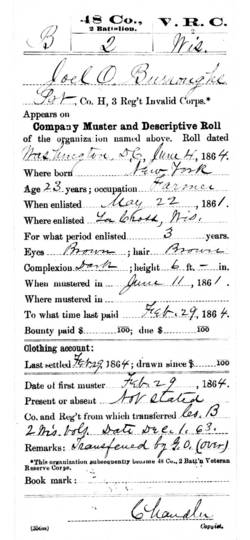 48 Co., V. R. C.
2 Battalion.
B 2 Wis.
Joel O. Burroughs
Pvt, Co. H, 3 Reg't Invalid Corps.*
Appears on
Company Muster and Descriptive Roll
of the organization named above. Roll dated
Washington D.C., June 4, 1864.
Where born New York
Age 23 years; occupation Farmer
When enlisted May 22, 1861.
Where enlisted La Cross, Wis.
For what period enlisted 3 years.
Eyes Brown; hair Brown
Complexion Dark; height 6 ft. – in.
When mustered in June 11, 1861.
Where mustered in
To what time last paid Feb. 29, 1864.
Bounty paid $ 100; due $ 100
Clothing account:
Last settled Feb 29, 1864; drawn since $ 100
Date of first muster Feb. 29, 1864.
Present or absent Not stated
Co. and Reg't from which transferred Co. B
2 Wis. Vols. Date Dec. 1, 63.
Remarks: Transferred by G.O. (over)
*This organization subsequently became 48 Co., 2 Batt'n Veteran
Reserve Corps.
Book mark:
Chandler
Copyist.